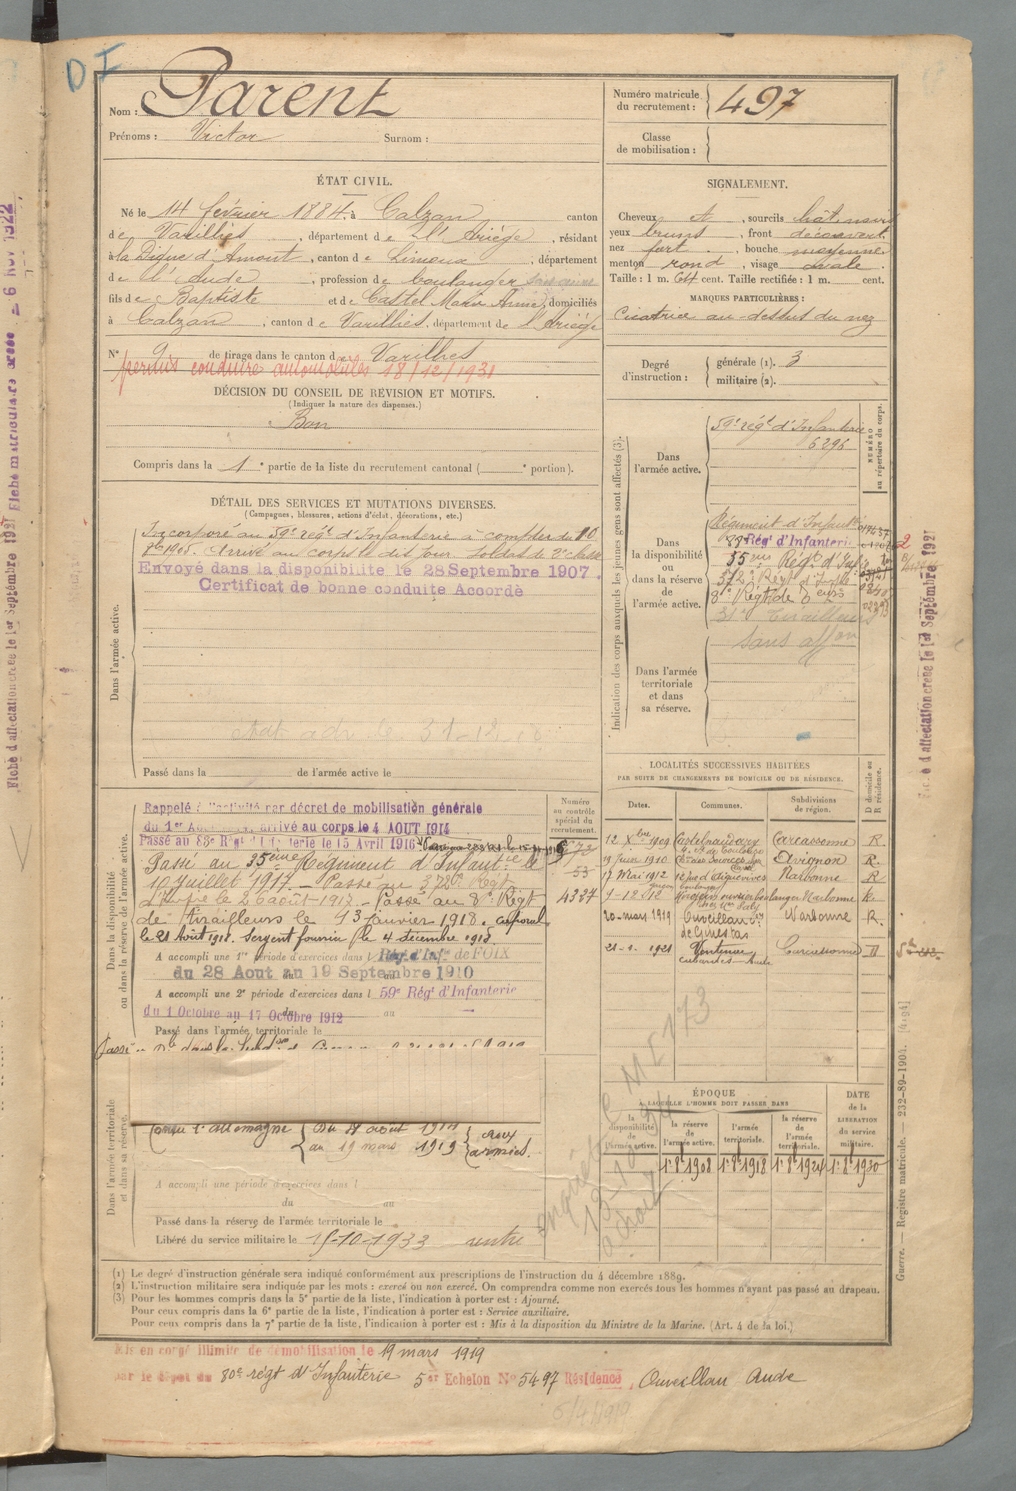 D I
Nom : Parent
Prénoms : Victor Surnom :
Numéro matricule du recrutement : 497
Classe de mobilisation :
ÉTAT CIVIL.
Né le 14 février 1884, à Calzan canton
de Varilhes, département de l'Ariège, résidant
à la Digne d'Amont, canton de Limoux, département
de l'Aude, profession de boulanger
fils de Baptiste et de Castel Marie Anne, domiciliés
à Calzan, canton de Varilhes, département de l'Ariège
N° 9 de tirage dans le canton de Varilhes
permis conduire automobiles 18/12/1931
SIGNALEMENT.
Cheveux et, sourcils châtains
yeux bruns, front découvert
nez fort, bouche moyenne
menton rond, visage ovale.
Taille : 1 m. 64 cent. Taille rectifiée : 1 m. cent.
MARQUES PARTICULIÈRES :
Cicatrice au-dessus du nez
Degré d'instruction : générale (1). 3
militaire (2).
DÉCISION DU CONSEIL DE RÉVISION ET MOTIFS.
(Indiquer la nature des dispenses.)
Bon
Compris dans la 1e partie de la liste du recrutement cantonal ( e portion).
DÉTAIL DES SERVICES ET MUTATIONS DIVERSES.
(Campagnes, blessures, actions d'éclat, décorations, etc.)
Dans l'armée active.
Incorporé au 59e régt d'Infanterie à compter du 10
8bre 1905. Arrivé au corps le dit jour. Soldat de 2e classe
Envoyé dans la disponibilité le 28 Septembre 1907.
Certificat de bonne conduite Accordé
Passé dans la de l'armée active le
Indication des corps auxquels les jeunes gens sont affectés (3).
NUMÉRO au répertoire du corps.
Dans l'armée active.
59e régt d'Infanterie
6296
Dans la disponibilité ou dans la réserve de l'armée active.
Régiment d'Infant
83 Régt d'Infanterie
35eme Régt d'Inf
372e Régt d'Infie
8e Régt de
31e Tirailleurs
sans affon
Dans l'armée territoriale et dans sa réserve.
Dans la disponibilité ou dans la réserve de l'armée active.
Numéro au contrôle spécial du recrutement.
Rappelé à l'activité par décret de mobilisation générale
du 1er Août arrivé au corps le 4 AOUT 1914
Passé au 83e Régt d'Infanterie le 15 Avril 1916
Passé au 35eme Régiment d'Infantie le
10 Juillet 1917. — Passé au 372e Régt
d'Infie le 26 août 1917. — Passé au 8e Régt
4327
de Tirailleurs le 13 janvier 1918. caporal
le 21 Août 1918. Sergent fourrier le 4 décembre 1918
A accompli une 1re période d'exercices dans l Rég. d'Inf. de FOIX
du 28 Aout au 19 Septembre 1910
A accompli une 2e période d'exercices dans l 59e Régt d'Infanterie
du 1 Octobre au 17 Octobre 1912
Passé dans l'armée territoriale le
LOCALITÉS SUCCESSIVES HABITÉES
PAR SUITE DE CHANGEMENTS DE DOMICILE OU DE RÉSIDENCE.
Dates. Communes. Subdivisions de région. D domicile ou R résidence.
12 Xbre 1909 Castelnaudary Carcassonne R.
19 Juin 1910 Avignon R.
17 Mai 1912 Narbonne R
9-12-12 Narbonne R.
20 mars 1919 Ouveillan con de Ginestas Narbonne R.
21-2-1921 Ventenac Cabardès Aude Carcassonne D
Dans l'armée territoriale et dans sa réserve.
Contre l'Allemagne { du 4 août 1914 au 19 mars 1919 } aux armées.
A accompli une période d'exercices dans l
du au
Passé dans la réserve de l'armée territoriale le
Libéré du service militaire le 15-10-1933
ÉPOQUE
À LAQUELLE L'HOMME DOIT PASSER DANS
la disponibilité de l'armée active. la réserve de l'armée active. l'armée territoriale. la réserve de l'armée territoriale. DATE de la LIBÉRATION du service militaire.
1r 8bre 1908 1r 8bre 1918 1r 8bre 1924 1r 8bre 1930
(1) Le degré d'instruction générale sera indiqué conformément aux prescriptions de l'instruction du 4 décembre 1889.
(2) L'instruction militaire sera indiquée par les mots : exercé ou non exercé. On comprendra comme non exercés tous les hommes n'ayant pas passé au drapeau.
(3) Pour les hommes compris dans la 5e partie de la liste, l'indication à porter est : Ajourné.
Pour ceux compris dans la 6e partie de la liste, l'indication à porter est : Service auxiliaire.
Pour ceux compris dans la 7e partie de la liste, l'indication à porter est : Mis à la disposition du Ministre de la Marine. (Art. 4 de la loi.)
Mis en congé illimité de démobilisation le 19 mars 1919
par le dépôt du 80e régt d'Infanterie 5e Echelon N° 5497 Résidence, Ouveillan Aude
Guerre. — Registre matricule. — 232-89-1904. [4194]
Fiche d'affectation créée le 1er Septembre 1927